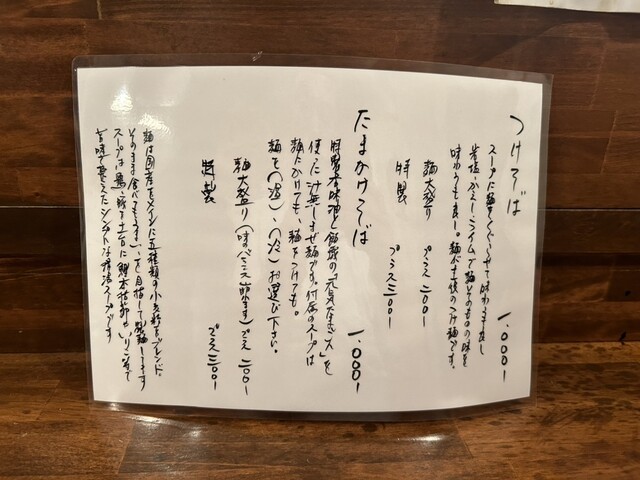 つけそば 1,000-
スープに麺をくぐらせて味わうも良し
岩塩、カレー、ライムで麺そのものの味を
味わうも良し。麺が主役のつけ麺です。
麺大盛り プラス 200-
特製 プラス 300-
たまかけそば 1,000-
特製香味油と飯能の「元気たまご」を
使った汁無しまぜ麺です。付属のスープは
麺にかけても、麺をつけても。
麺を(温)、(冷)お選び下さい。
麺大盛り(味のバランス 節ます)プラス 200-
特製 プラス 300-
麺は国産をメインに五種類の小麦粉をブレンド。
そのまま食べてもうまい、を目指して製麺してます
スープは鶏、豚を土台に鰹本枯節やいりこ等で
旨味で整えたシンプルな清湯スープです